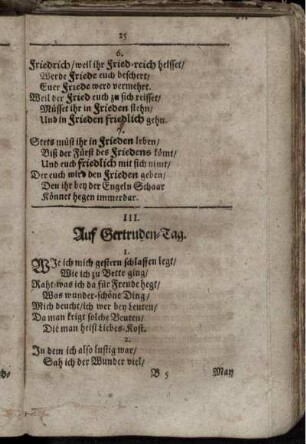 25
6.
Friedrich/ weil ihr Fried-reich heisset/
Werde Friede euch beschert/
Euer Friede werd vermehrt.
Weil der Fried euch zu sich reisset/
Müsset ihr in Frieden stehn/
Und in Frieden friedlich gehn.
7.
Stets müst ihr in Frieden leben/
Biß der Fürst des Friedens kömt/
Und euch friedlich mit sich nimt/
Der euch wird den Frieden geben/
Den ihr bey der Engeln Schaar
Könnet hegen immerdar.
III.
Auf Gertruden-Tag.
1.
WIe ich mich gestern schlaffen legt/
Wie ich zu Bette ging/
Raht/ was ich da für Freude hegt/
Was wunder-schöne Ding/
Mich deucht/ ich wer bey Leuten/
Da man krigt solche Beuten/
Die man heist Liebes-Kost.
2.
In dem ich also lustig war/
Sah ich der Wunder viel/
B 5
May